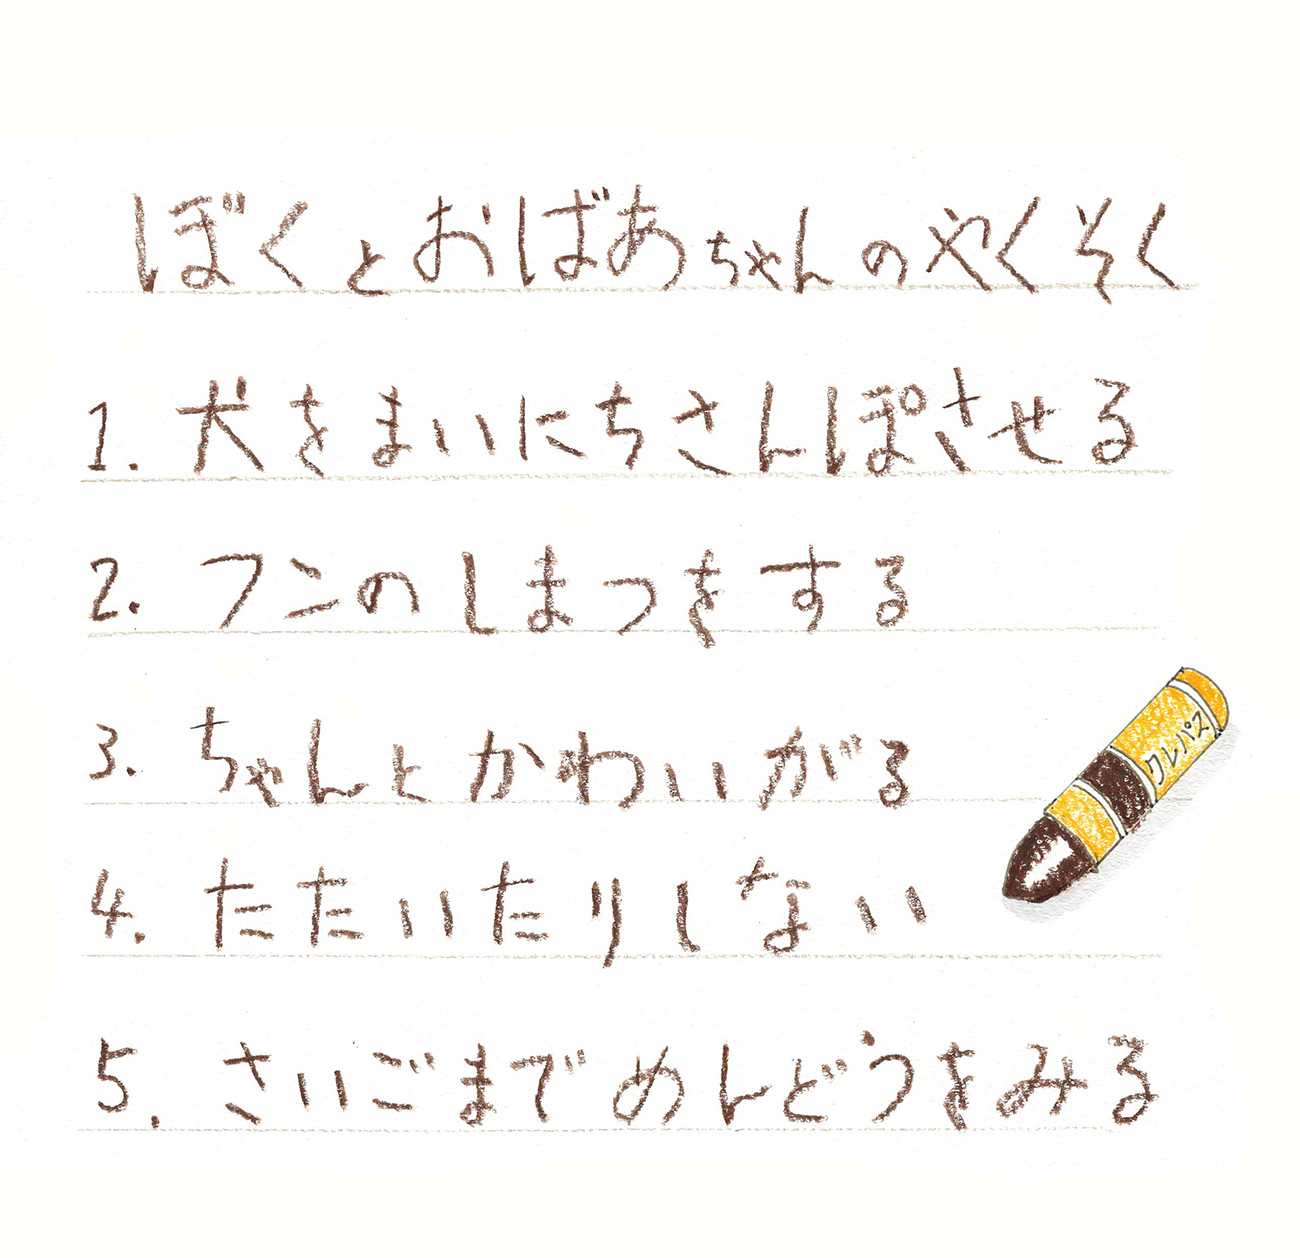 ぼくとおばあちゃんのやくそく
1. 犬をまいにちさんぽさせる
2. フンのしまつをする
3. ちゃんとかわいがる
クレパス
4. たたいたりしない
5. さいごまでめんどうをみる